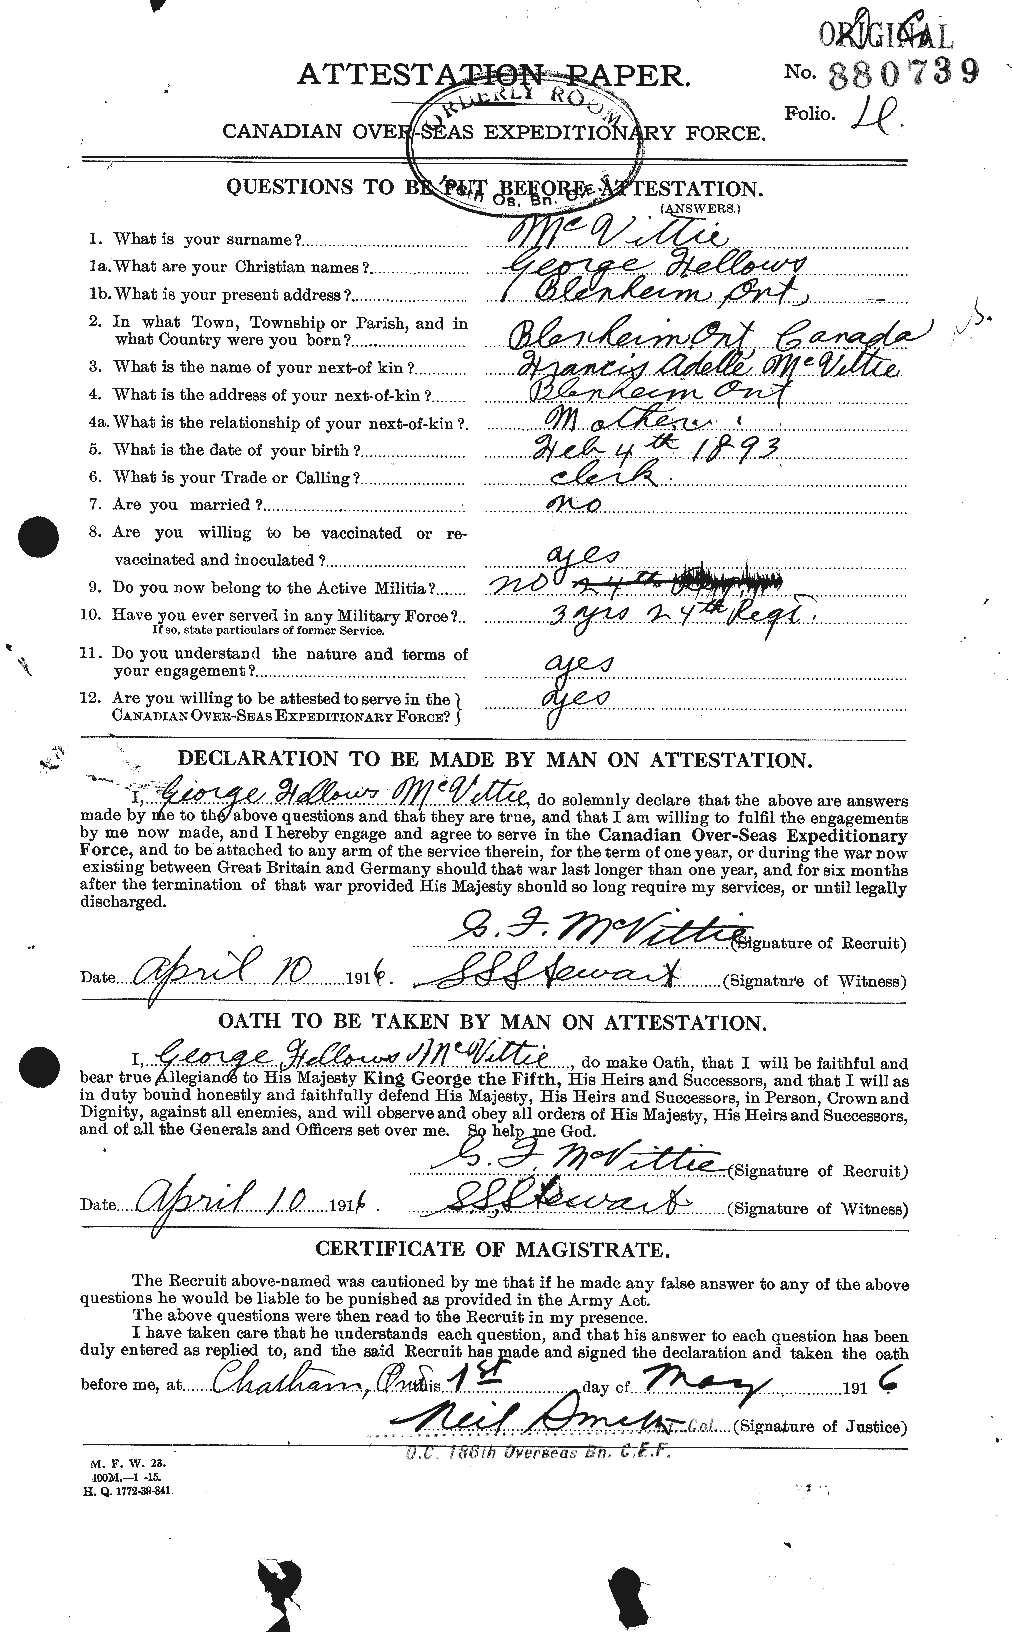 ORIGINAL
ATTESTATION PAPER.
No. 880739
Folio.
ORDERLY ROOM
CANADIAN OVER-SEAS EXPEDITIONARY FORCE.
186th Os. Bn. C.E.F.
QUESTIONS TO BE PUT BEFORE ATTESTATION.
(ANSWERS.)
1. What is your surname? McVittie
1a. What are your Christian names? George Fellows
1b. What is your present address? Blenheim Ont,
2. In what Town, Township or Parish, and in
what Country were you born? Blenheim Ont Canada
3. What is the name of your next-of kin? Francis Adelle McVittie
4. What is the address of your next-of-kin? Blenheim Ont
4a. What is the relationship of your next-of-kin? Mother
5. What is the date of your birth? Feb 4th 1893
6. What is your Trade or Calling? clerk
7. Are you married? no
8. Are you willing to be vaccinated or re-
vaccinated and inoculated? yes
9. Do you now belong to the Active Militia? no 24th Regt
10. Have you ever served in any Military Force? 3 yrs 24th Regt.
If so, state particulars of former Service.
11. Do you understand the nature and terms of
your engagement? yes
12. Are you willing to be attested to serve in the }
CANADIAN OVER-SEAS EXPEDITIONARY FORCE? } yes
DECLARATION TO BE MADE BY MAN ON ATTESTATION.
I, George Fellows McVittie, do solemnly declare that the above are answers
made by me to the above questions and that they are true, and that I am willing to fulfil the engagements
by me now made, and I hereby engage and agree to serve in the Canadian Over-Seas Expeditionary
Force, and to be attached to any arm of the service therein, for the term of one year, or during the war now
existing between Great Britain and Germany should that war last longer than one year, and for six months
after the termination of that war provided His Majesty should so long require my services, or until legally
discharged.
G. F. McVittie (Signature of Recruit)
Date April 10 1916. SSS Stewart (Signature of Witness)
OATH TO BE TAKEN BY MAN ON ATTESTATION.
I, George Fellows McVittie, do make Oath, that I will be faithful and
bear true Allegiance to His Majesty King George the Fifth, His Heirs and Successors, and that I will as
in duty bound honestly and faithfully defend His Majesty, His Heirs and Successors, in Person, Crown and
Dignity, against all enemies, and will observe and obey all orders of His Majesty, His Heirs and Successors,
and of all the Generals and Officers set over me. So help me God.
G. F. McVittie (Signature of Recruit)
Date April 10 1916. SSS Stewart (Signature of Witness)
CERTIFICATE OF MAGISTRATE.
The Recruit above-named was cautioned by me that if he made any false answer to any of the above
questions he would be liable to be punished as provided in the Army Act.
The above questions were then read to the Recruit in my presence.
I have taken care that he understands each question, and that his answer to each question has been
duly entered as replied to, and the said Recruit has made and signed the declaration and taken the oath
before me, at Chatham, Ont this 1st day of May 1916
Neil Smith Lt. Col. (Signature of Justice)
O.C. 186th Overseas Bn. C.E.F.
M. F. W. 23.
100M.—1 -15.
H. Q. 1772-39-841.